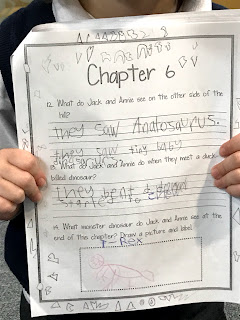 Chapter 6
12. What do Jack and Annie see on the other side of the
hill?
They saw Anatosaurus.
they saw tiny baby
13. What do Jack and Annie do when they meet a duck
billed dinosaur?
They bent
started to
14. What monster dinosaur do Jack and Annie see at the
end of this chapter? Draw a picture and label.
T-Rex